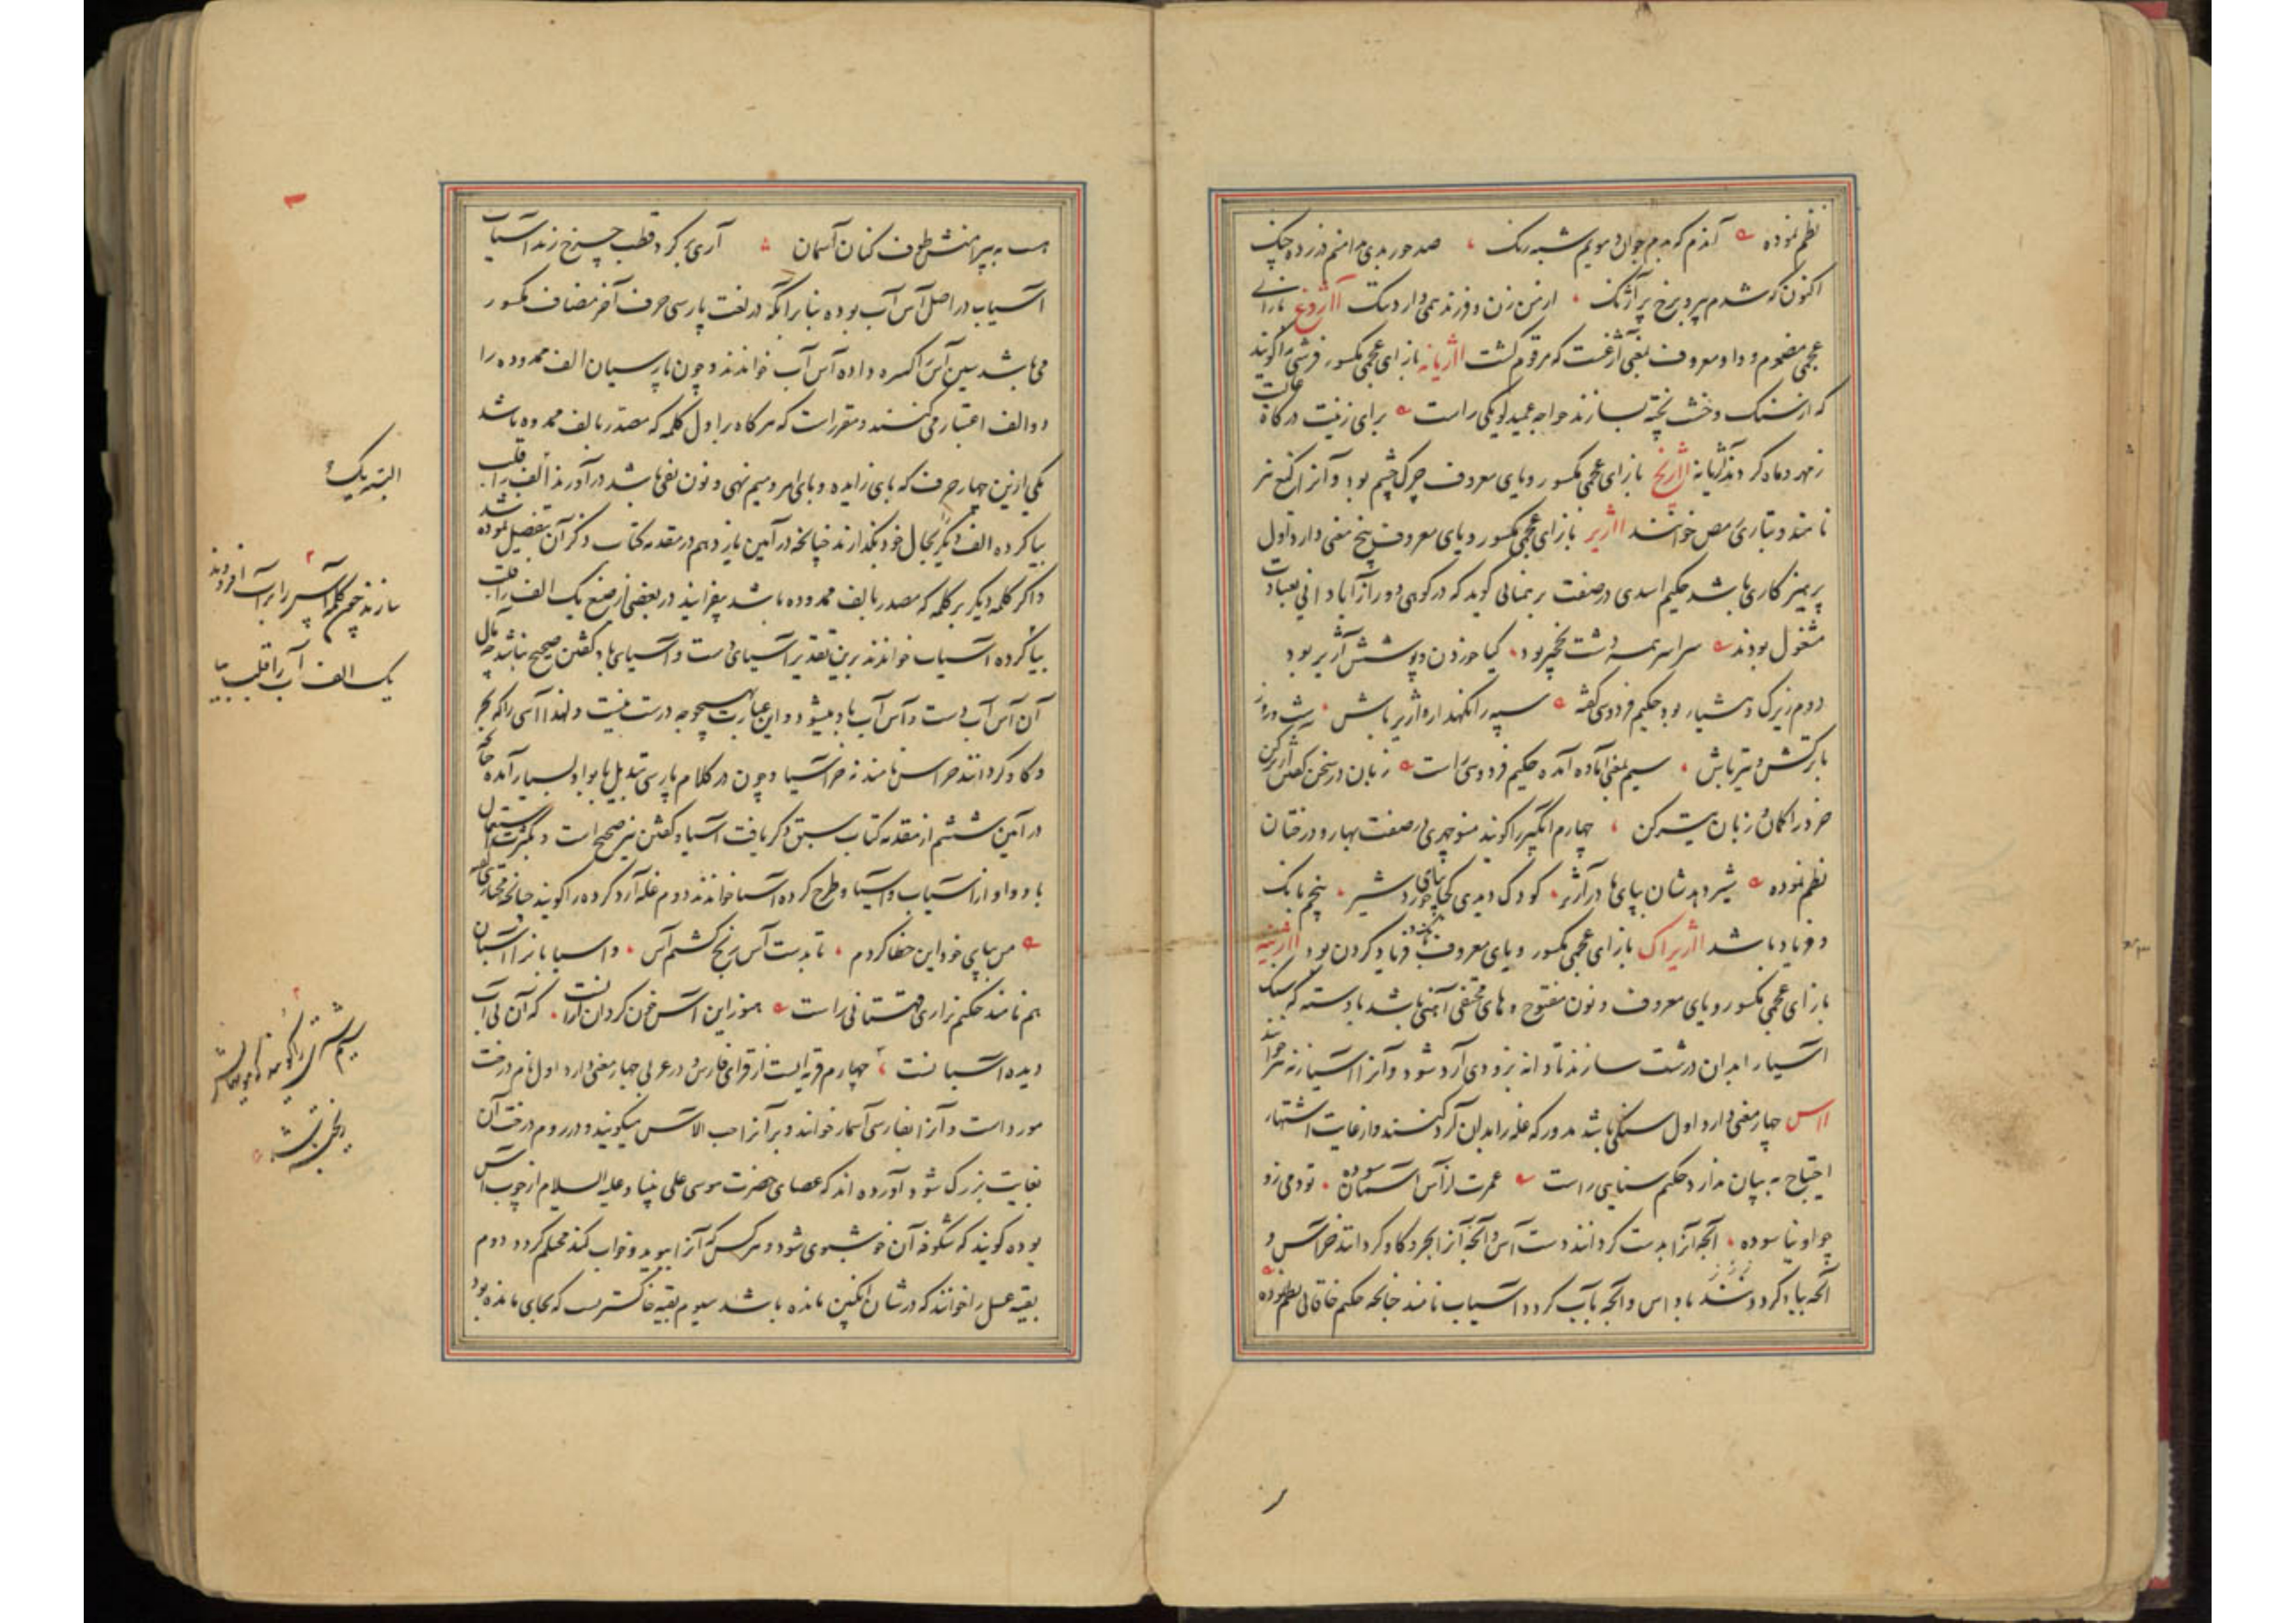 نظم نموده آندم که بدم جوان و مویم شبه رنگ صد حور بدی بدامنم در زده چنگ
اکنون که شدم پیر و برخ پر آژنگ از من زن و فرزند همی دارد ننگ آاژدغ بازای
عجمی مضموم و واو معروف بمعنی آژغست که مرقوم گشت ااژیانه بازای عجمی مکسور فرشی را گویند
که از سنگ و خشت پخته بسازند خواجه عمید لویکی راست برای زینت درگاه
زمهر و ماه کردند آژیانه ااژیخ بازای عجمی مکسور و یای معروف چرک چشم بود و آنرا کیخ نیز
نامند و بتازی رمص خوانند ااژیر بازای عجمی مکسور و یای معروف پنج معنی دارد اول
پرهیزکاری باشد حکیم اسدی در صفت برهمنانی گوید که در کوهی دور از آبادانی بعبادت
مشغول بودند سراسر همه دشت نخچیر بود گیا خوردن و پوشش آژیر بود
دوم زیرک و هشیار بود حکیم فردوسی گفته سپه را نگهدار و آژیر باش شب و روز
با ترکش و تیر باش سیم بمعنی آماده آمده حکیم فردوسی راست زبان در سخن گفتن آژیر کن
خرد را کمان و زبان تیر کن چهارم آبگیر را گویند منوچهری در صفت بهار و درختان
نظم نموده شیر دهدشان بپای مادر آژیر کودک دیدی کجا بپای خورد شیر پنجم بانک
و فریاد باشد ااژیراک بازای عجمی مکسور و یای معروف بانگ و فریاد کردن بود ااژینه
بازای عجمی مکسور و یای معروف و نون مفتوح و های مختفی آهنی باشد با دسته که سنگ
آسیا را بدان درشت سازند تا دانه بزودی آرد شود و آنرا آسیازنه نیز خوانند
ااس چهار معنی دارد اول سنگی باشد مدور که غله را بدان آرد کنند و از غایت اشتهار
احتیاج به بیان ندارد حکیم سنایی راست عمرت از آس آسمان سوده تو دمی زو
چو او نیاسوده آنچه آنرا بدست گردانند دست آس و آنچه آنرا بخر و گاو گردانند خرآس و
آنچه بباد گردد باد آس و آنچه بآب گردد آسیاب نامند چنانچه حکیم خاقانی نظم نموده
هست به پیرامنش طوف کنان آسمان آری بر گرد قطب چرخ زند آسیاب
آسیاب در اصل آس آب بوده بنا بر آنکه در لغت پارسی حرف آخر مضاف مکسور
می باشد سین آس را کسره داده آس آب خواندند و چون پارسیان الف ممدوده را
دو الف اعتبار می کنند و مقرر است که هر گاه بر اول کلمه که مصدر بالف ممدوده باشد
یکی ازین چهار حرف که بای زایده و بای امر و میم نهی و نون نفی باشد درآورند الف را قلب
بیا کرده الف دیگر بحال خود بگذارند چنانچه در آیین یازدهم در مقدمه کتاب ذکر آن تفصیل نموده شد
و اگر کلمه دیگر بر کلمه که مصدر بالف ممدوده باشد بیفزایند در بعضی از صیغ یک الف را قلب
بیا کرده آسیاب خوانند برین تقدیر آسیای دست و آسیای باد گفتن صحیح نباشد چه مآل
آن آس آب دست و آس آب باد میشود و این عبارت بهیچوجه درست نیست و لهذا آسی را که بخر
و گاو گردانند خراس نامند نه خر آسیا و چون در کلام پارسی تبدیل با بواو بسیار آمده چنانچه
در آیین ششم از مقدمه کتاب سبق ذکر یافت آسیاو گفتن نیز صحیح است و بکثرت استعمال
با و واو از آسیاب و آسیاو طرح کرده آسیا خوانند دوم غله آرد کرده را گویند چنانچه مختاری گفته
من بپای خود این خطا کردم تا بدست آس رنج گشتم آس و آسیابان را آسبان
هم نامند حکیم نزاری قهستانی راست هنوز این آس خون گردان از آنست که آن بی آب
دیده آسیا نست چهارم قریه ایست از قرای فارس و در عربی چهار معنی دارد اول نام درخت
مورد است و آنرا بفارسی آسمار خوانند و بر آنرا حب الآس میگویند و در روم درخت آن
بغایت بزرگ شود آورده اند که عصای حضرت موسی علی نبینا و علیه السلام از چوب آس
بوده گویند که شکوفه آن خوشبوی شود و هر کس که آنرا ببوید و خواب کند محتلم گردد دوم
بقیه عسل را خوانند که در شان انگبین مانده باشد سیوم بقیه خاکستریست که بجای مانده بود
البته یک
سازند چون کلمه آس را بر آب افزودند
یک الف آب را قلب بیا